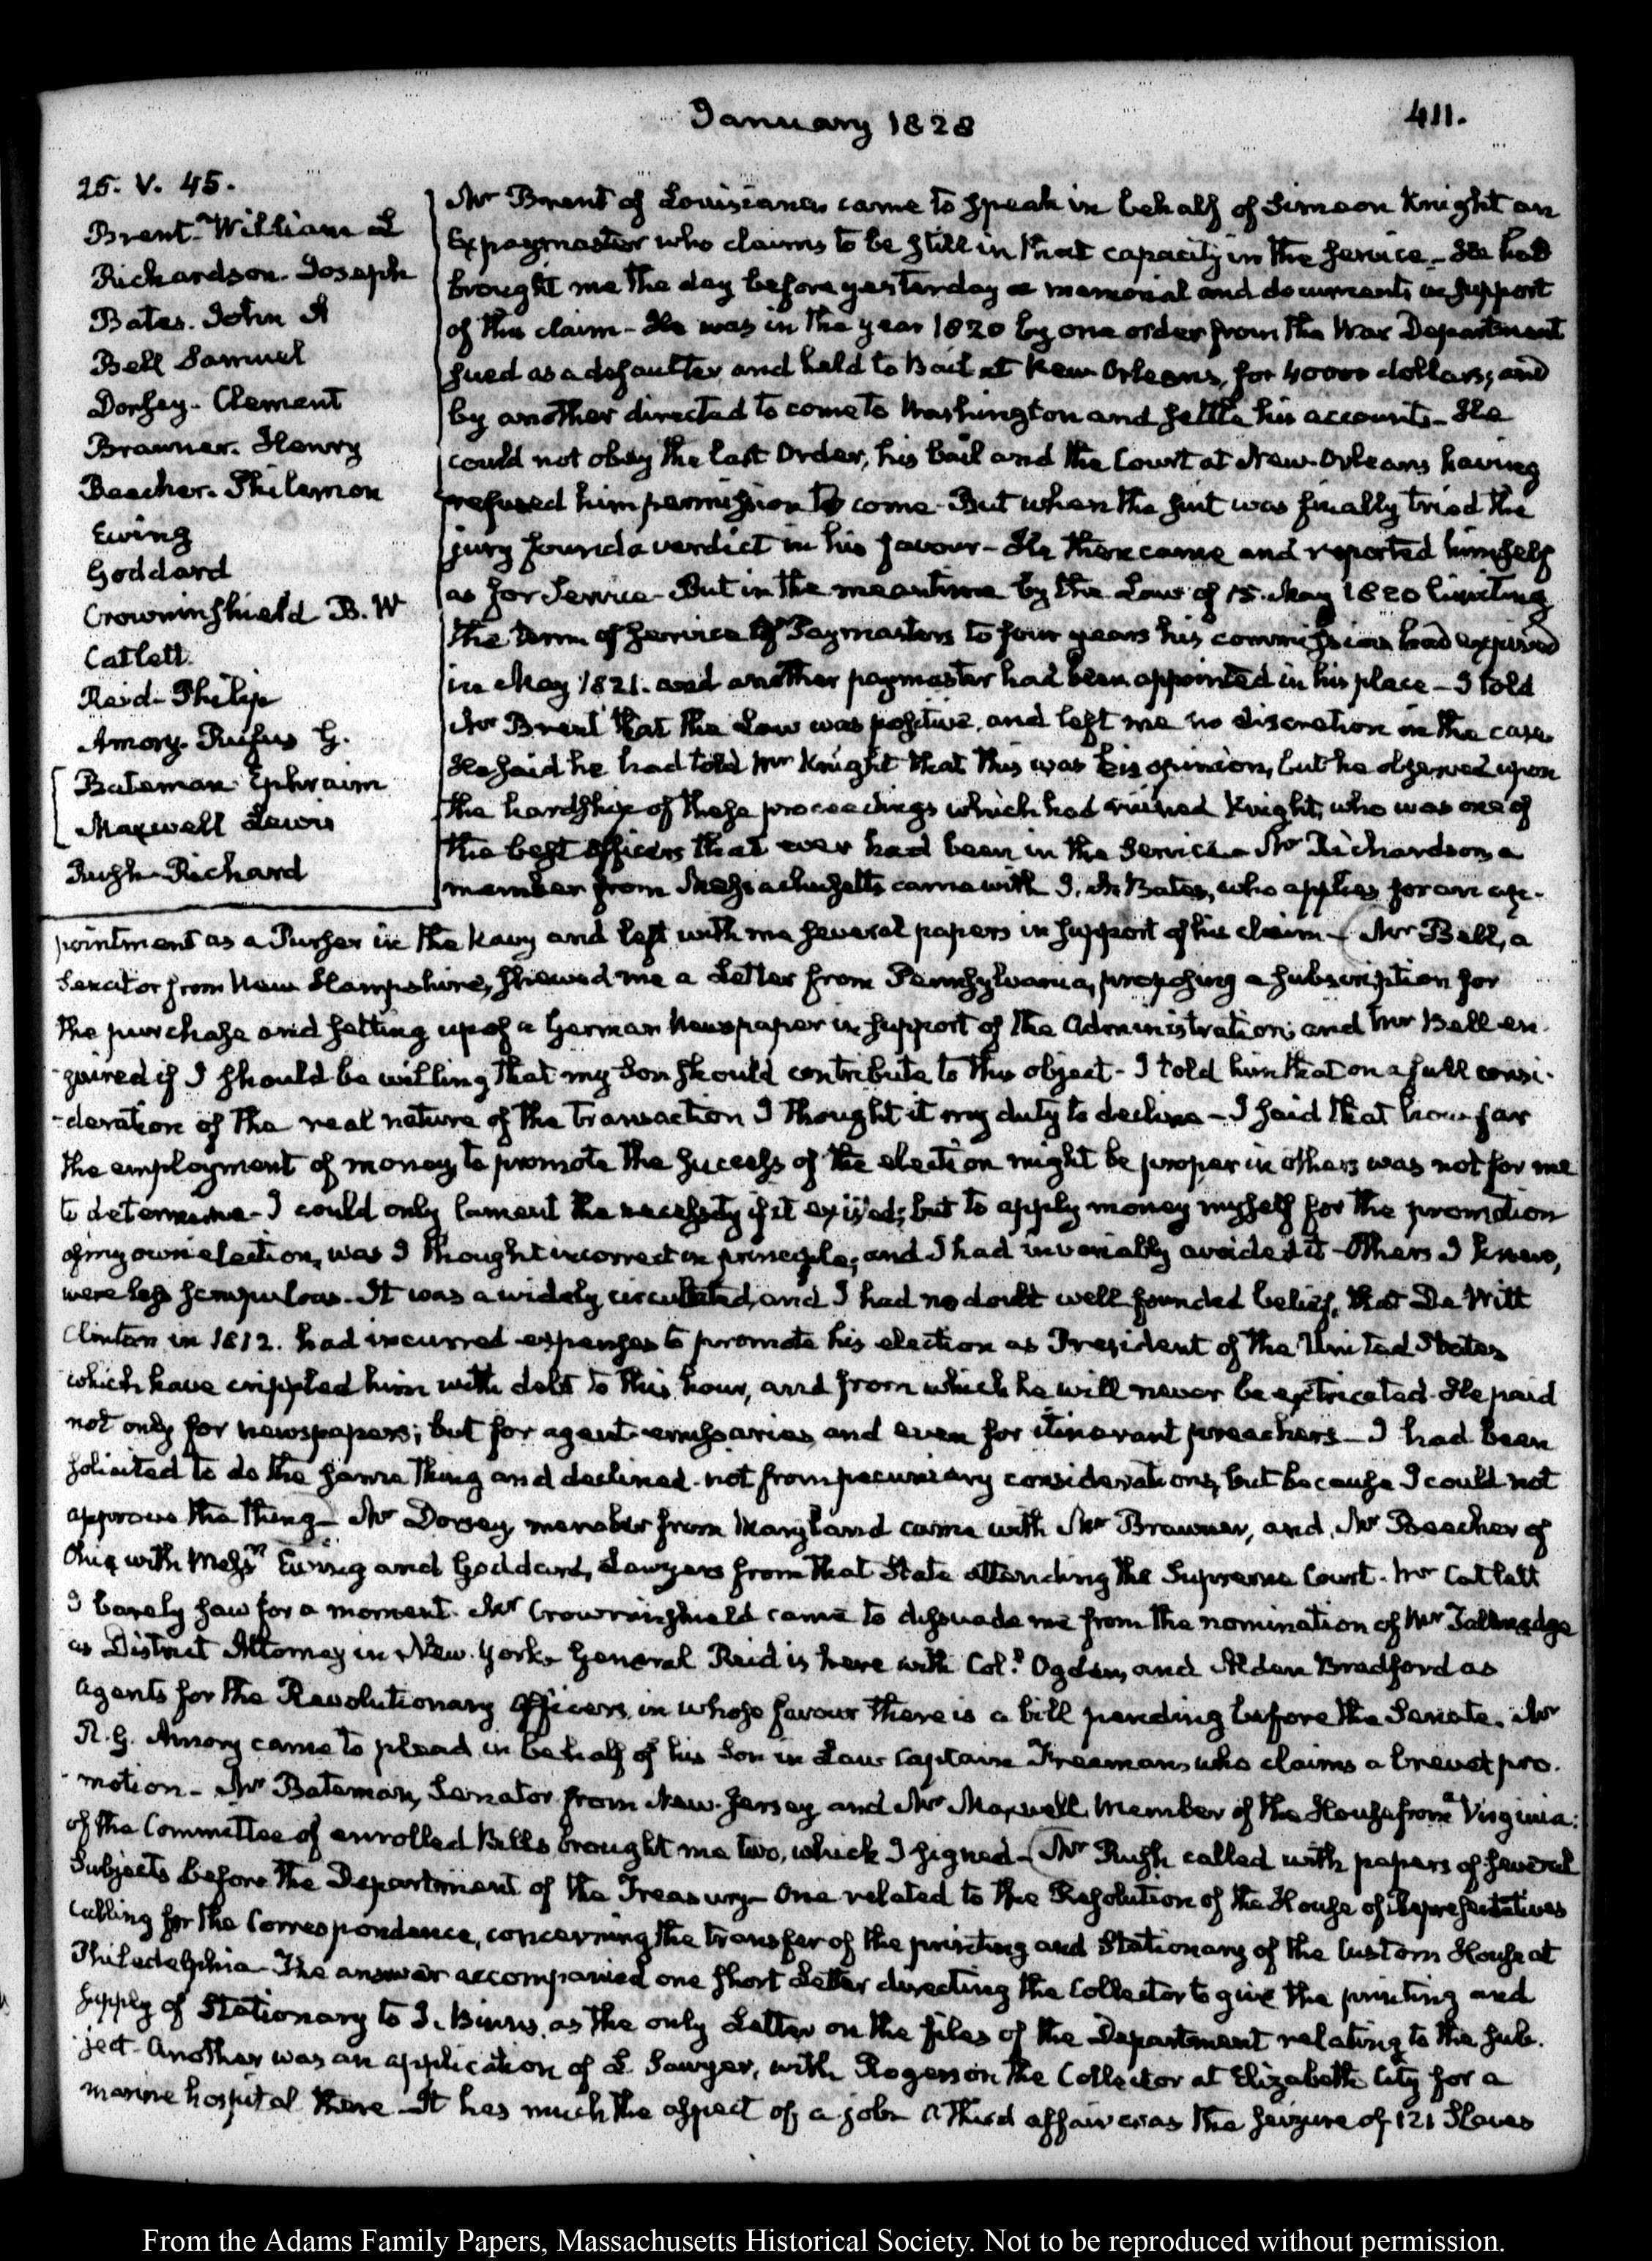 January 1828
411.
25. V. 45.
Brent. William L
Richardson. Joseph
Bates. John A
Bell Samuel
Dorsey. Clement
Brawner. Henry
Beecher. Philemon
Ewing
Goddard
Crowninshield B. W
Catlett.
Reid. Philip
Amory. Rufus G.
Bateman Ephraim
Maxwell Lewis
Rush Richard
Mr Brent of Louisiana came to speak in behalf of Simeon Knight an
Expaymaster who claims to be still in that capacity in the service. He had
brought me the day before yesterday a memorial and documents in support
of this claim. He was in the year 1820 by one order from the War Department
sued as a defaulter and held to Bail at New Orleans, for 40000 dollars; and
by another directed to come to Washington and settle his accounts. He
could not obey the last Order, his bail and the Court at New. Orleans having
refused him permission to come. But when the suit was finally tried the
jury found a verdict in his favour. He then came and reported himself
as for Service. But in the meantime by the Law of 15. May 1820 limiting
the term of service of Paymasters to four years his commission had expired
in May 1821. and another paymaster had been appointed in his place. I told
Mr Brent that the Law was positive, and left me no discretion in the case.
He said he had told Mr Knight that this was his opinion, but he observed upon
the hardship of these proceedings which had ruined Knight, who was one of
the best Officers that ever had been in the Service. Mr Richardson a
member from Massachusetts came with J. A. Bates, who applies for an ap-
pointment as a Purser in the Navy and left with me several papers in support of his claim. Mr Bell, a
Senator from New Hampshire, shewed me a Letter from Pennsylvania, proposing a subscription for
the purchase and setting up of a German Newspaper in support of the Administration; and Mr Bell en-
-quired if I should be willing that my Son should contribute to this object. I told him that on a full consi-
-deration of the real nature of the transaction I thought it my duty to decline. I said that how far
the employment of money to promote the success of the election might be proper in others was not for me
to determine. I could only lament the necessity if it existed; but to apply money myself for the promotion
of my own election, was I thought incorrect in principle; and I had invariably avoided it. Others I knew,
were less scrupulous. It was a widely circulated, and I had no doubt well founded belief, that De Witt
Clinton in 1812. had incurred expenses to promote his election as President of the United States
which have crippled him with debt to this hour, and from which he will never be extricated. He paid
not only for newspapers; but for agent emissaries, and even for itinerant preachers. I had been
solicited to do the same thing and declined. not from pecuniary considerations, but because I could not
approve the thing. Mr Dorsey, member from Maryland came with Mr Brawner, and Mr Beecher of
Ohio with Messrs Ewing and Goddard, Lawyers from that State attending the Supreme Court. Mr Catlett
I barely saw for a moment. Mr Crowninshield came to dissuade me from the nomination of Mr Tallmadge
as District Attorney in New. York. General Reid is here with Col. Ogden, and Alden Bradford as
agents for the Revolutionary Officers, in whose favour there is a bill pending before the Senate. Mr
R. G. Amory came to plead in behalf of his Son in Law Captain Freeman, who claims a brevet pro-
-motion. Mr Bateman, Senator from New. Jersey and Mr Maxwell Member of the House from Virginia:
of the Committee of enrolled Bills brought me two, which I signed. Mr Rush called with papers of several
Subjects before the Department of the Treasury. One related to the Resolution of the House of Representatives
calling for the Correspondence, concerning the transfer of the printing and Stationary of the Custom House at
Philadelphia. The answer accompanied one short Letter directing the Collector to give the printing and
supply of Stationary to J. Binns, as the only Letter on the files of the Department relating to the sub-
-ject. Another was an application of L. Sawyer, with Rogerson the Collector at Elizabeth City for a
marine hospital there. It has much the aspect of a job. A third affair was the seizure of 121 Slaves
From the Adams Family Papers, Massachusetts Historical Society. Not to be reproduced without permission.